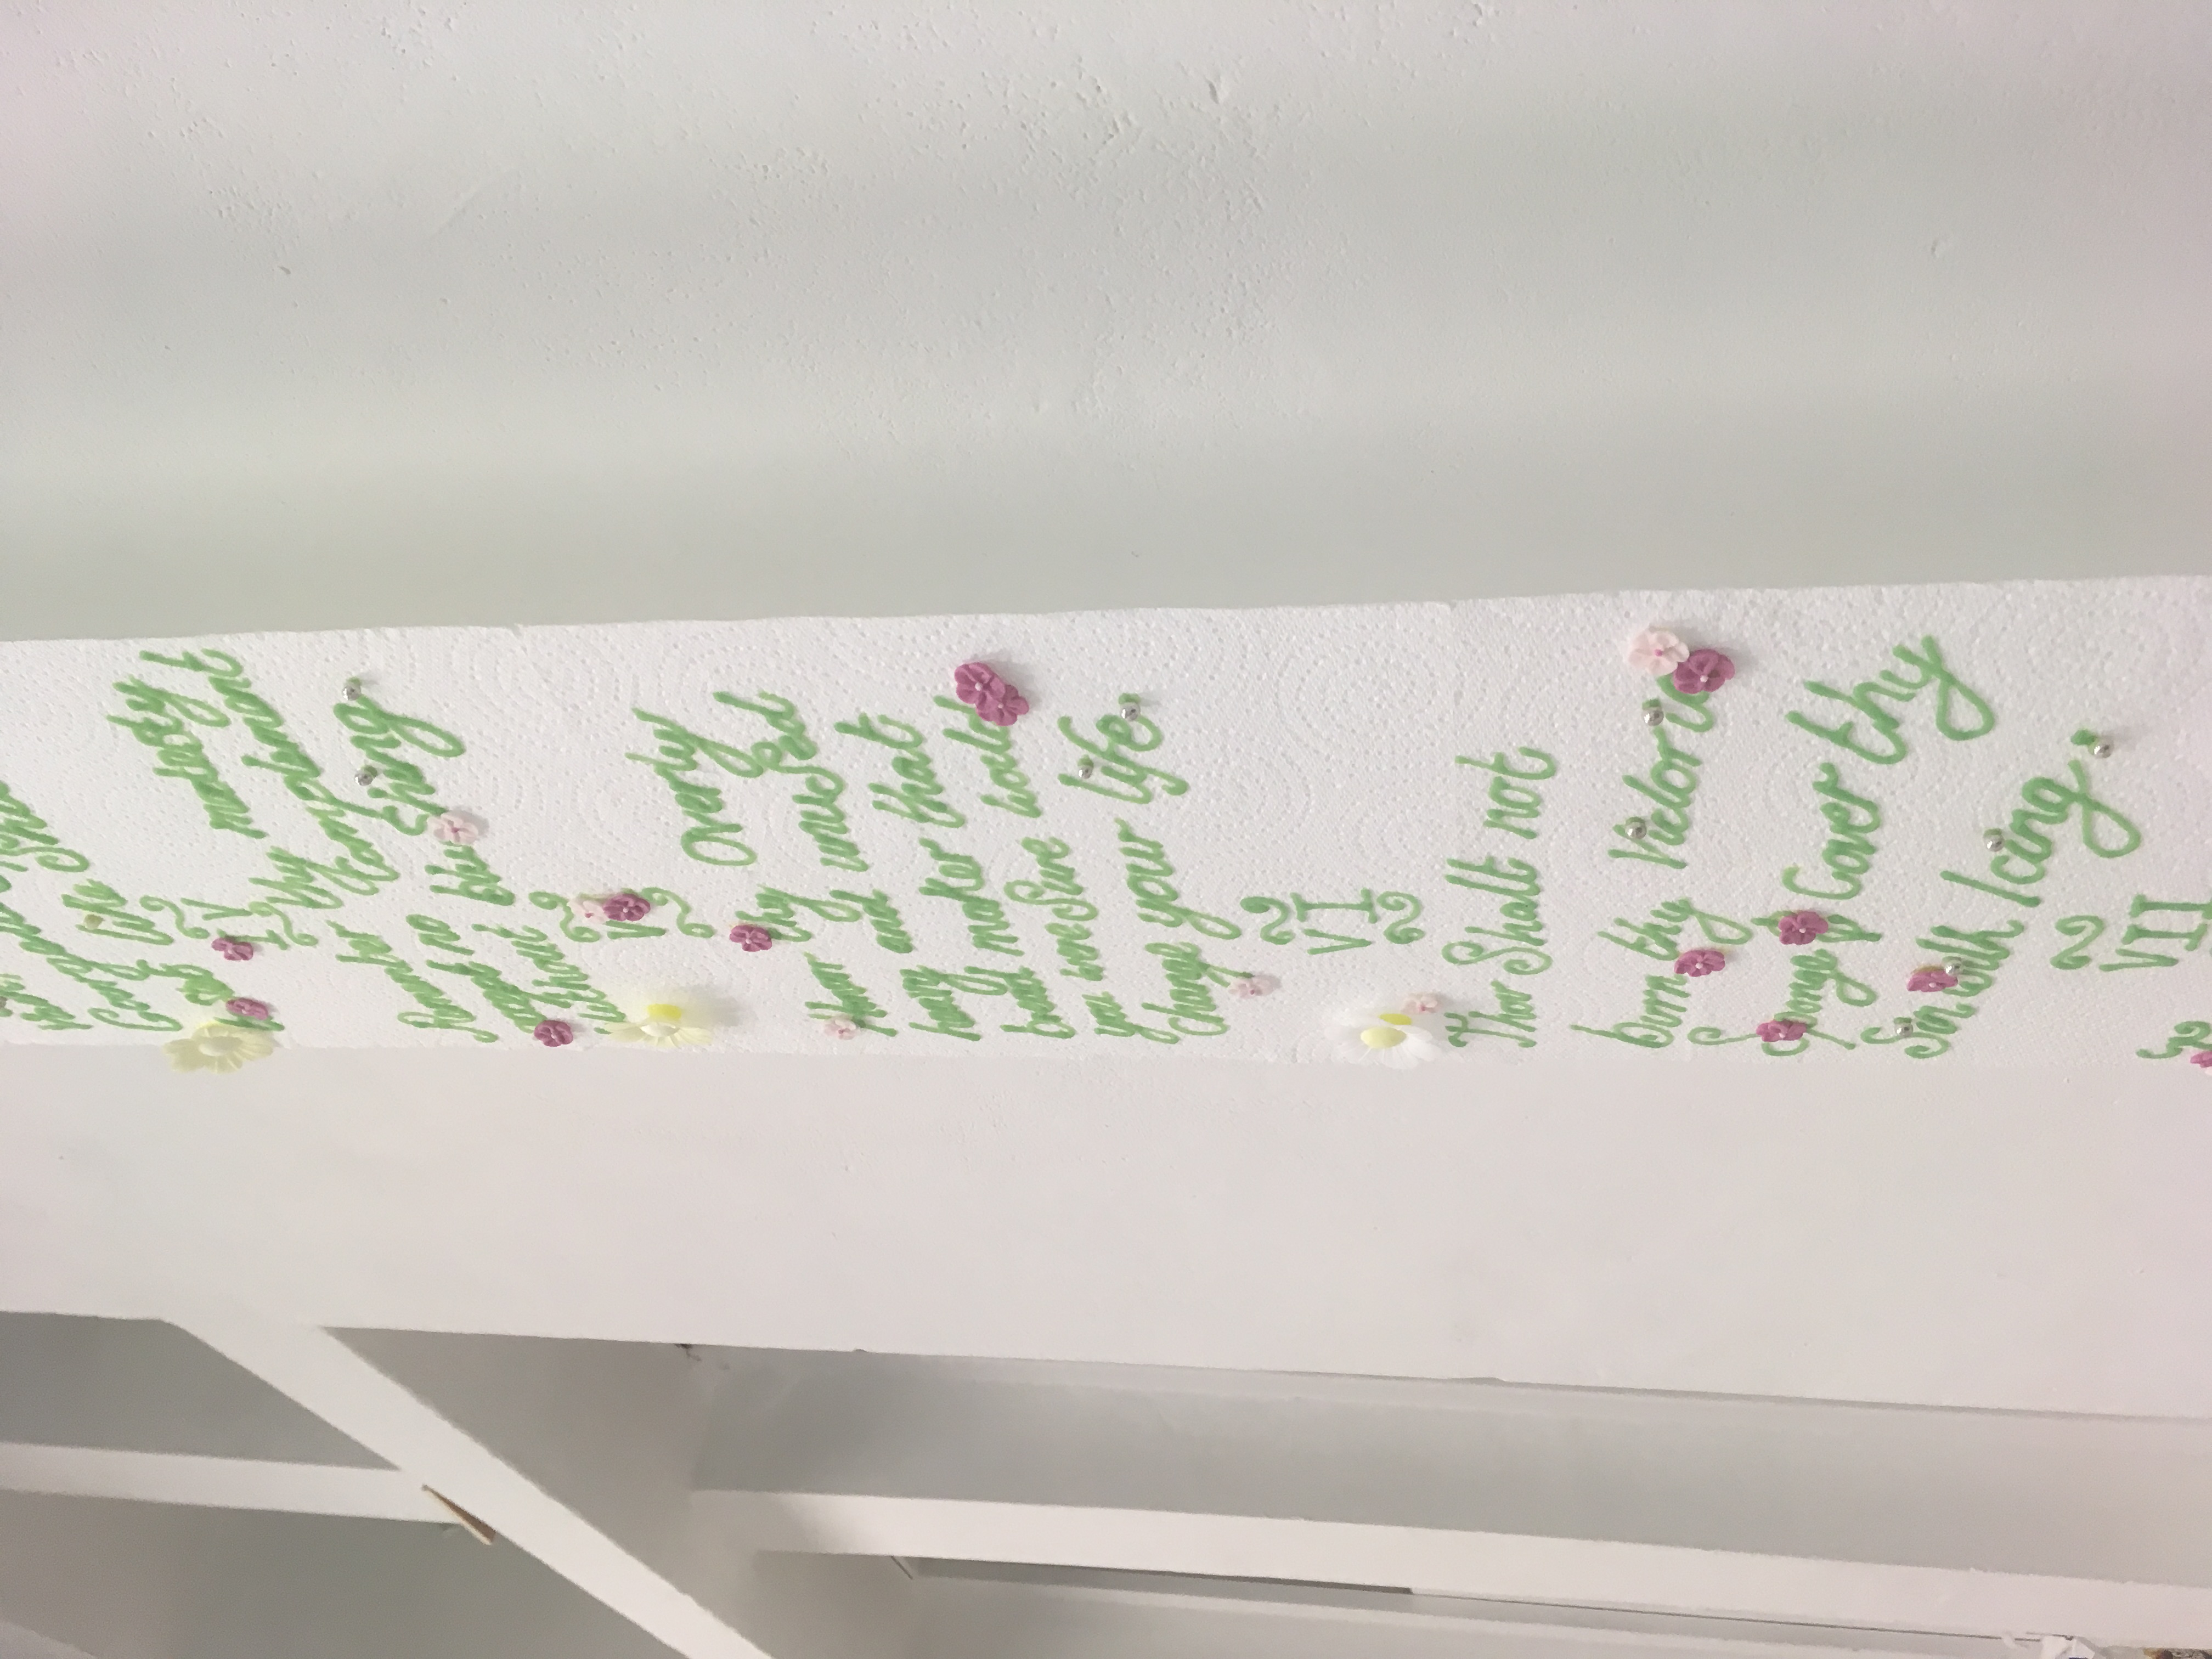 like
IV
Remember thy modesty
accept no complement
without blushing.
V
Honor thy Overly
heavy and unused
bread maker that
you were Sure would
change your life.
VI
Thou Shalt not
burn thy Victoria
Sponge & Cover thy
Sin with Icing.
VII